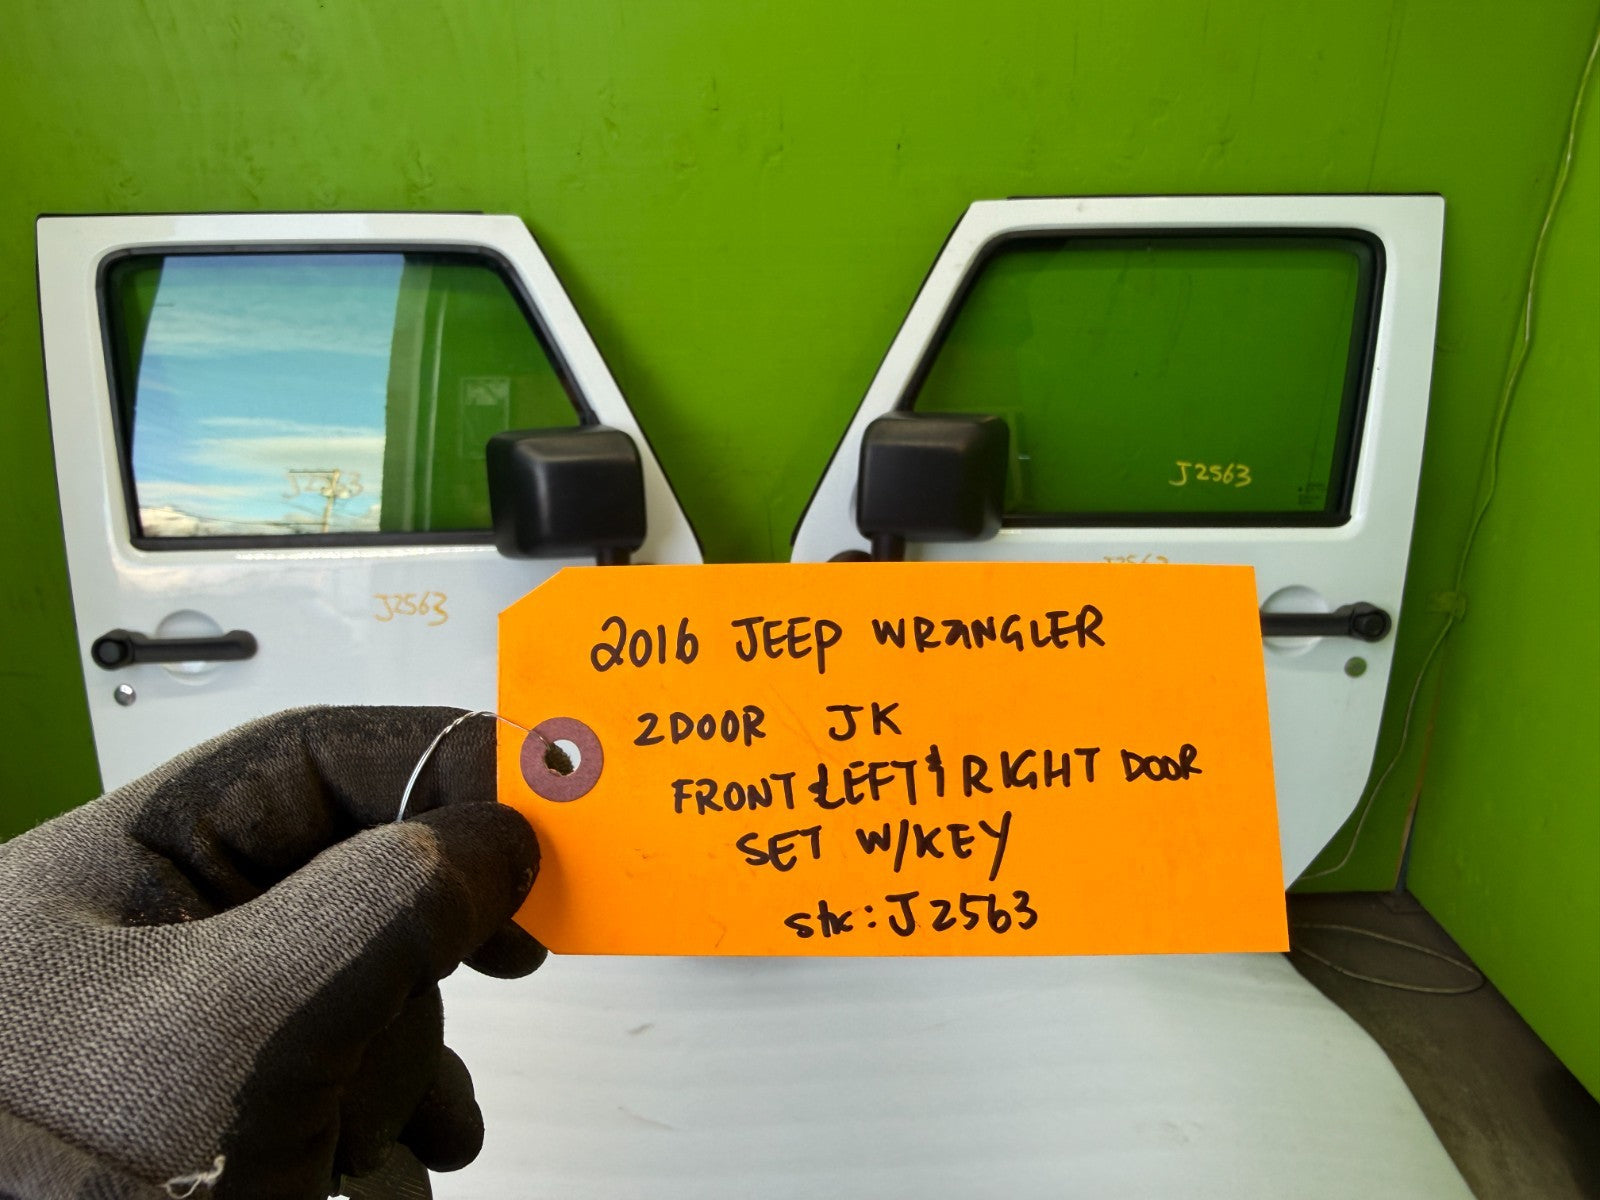 J2563
J2563
J2563
J2563
2016 JEEP WRANGLER
2DOOR JK
FRONT LEFT & RIGHT DOOR
SET W/KEY
stk: J2563